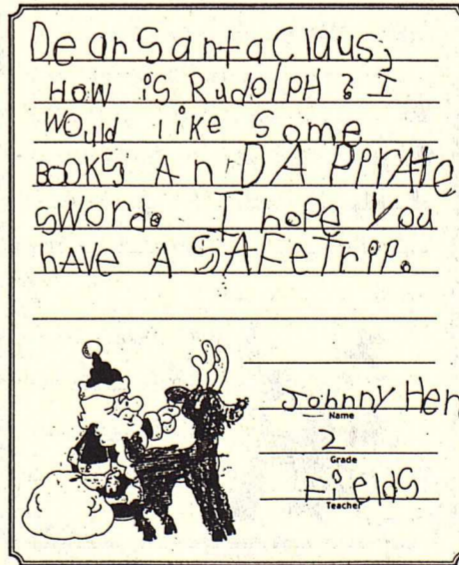 Dear Santa Claus,
HOW iS RudolPH ? I
WOuld like Some
BOOKS AnD A PirAte
SWord. I hope You
hAVe A SAFe Trip.
Johnny Her
Name
2
Grade
Fields
Teacher